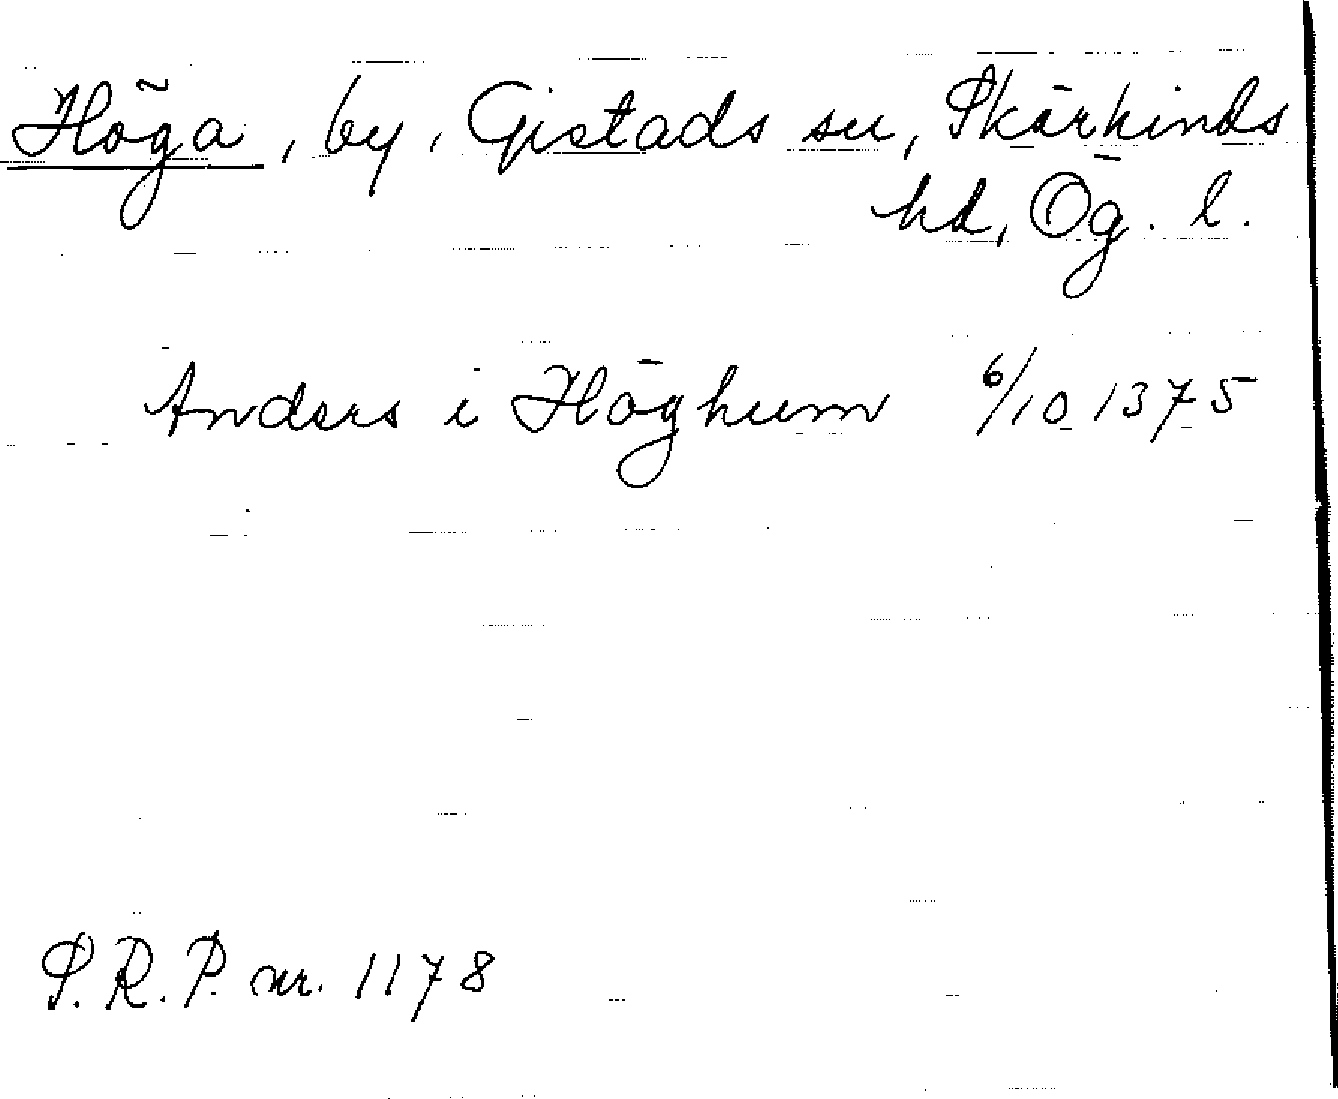 Höga, by, Gistads sn, Skärkinds
hd, Ög. l.
Anders i Höghum 6/10 1375
S.R.P. nr. 1178